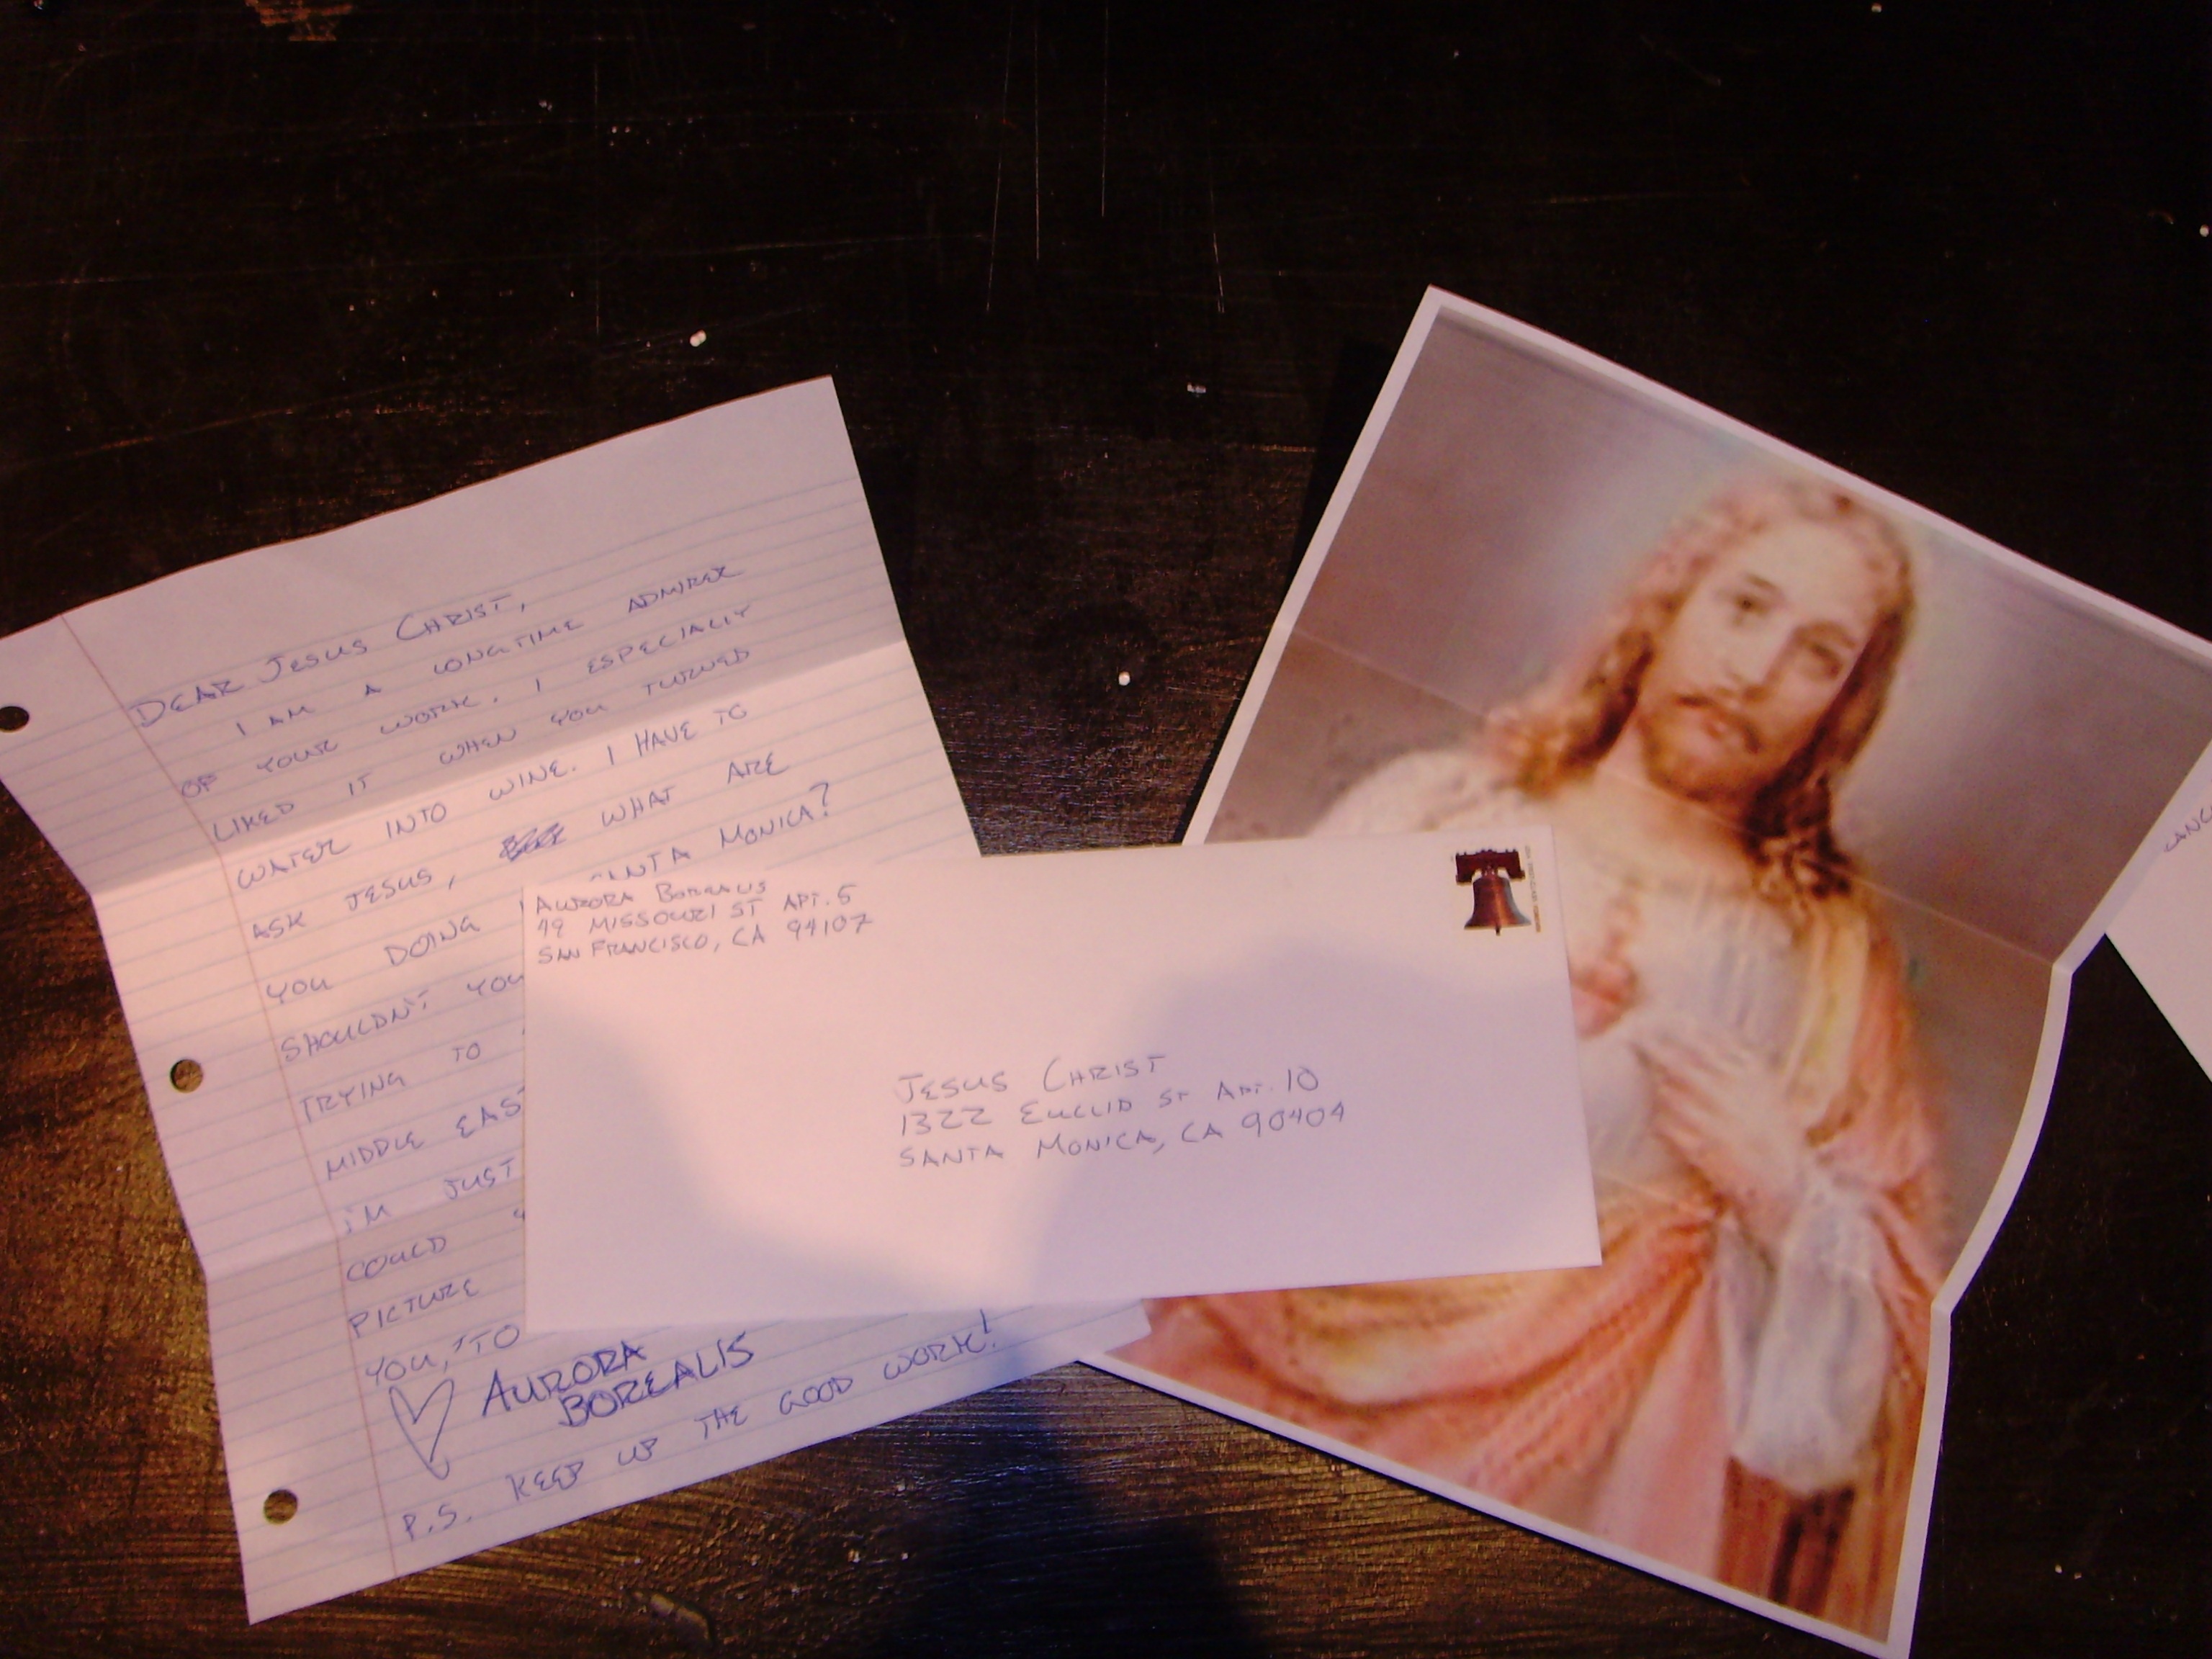 DEAR JESUS CHRIST,
I AM A LONGTIME ADMIRER
OF YOUR WORK. I ESPECIALLY
LIKED IT WHEN YOU TURNED
WATER INTO WINE. I HAVE TO
ASK JESUS, WHAT ARE
YOU DOING ANTA MONICA?
SHOULDN'T YOU
TRYING TO
MIDDLE EAST
I'M JUST
COULD
PICTURE
YOU, "TO
AURORA
BOREALIS
P.S. KEEP UP THE GOOD WORK!
AURORA BOREALIS
49 MISSOURI ST APT. 5
SAN FRANCISCO, CA 94107
JESUS CHRIST
1322 EUCLID ST APT. 10
SANTA MONICA, CA 90404